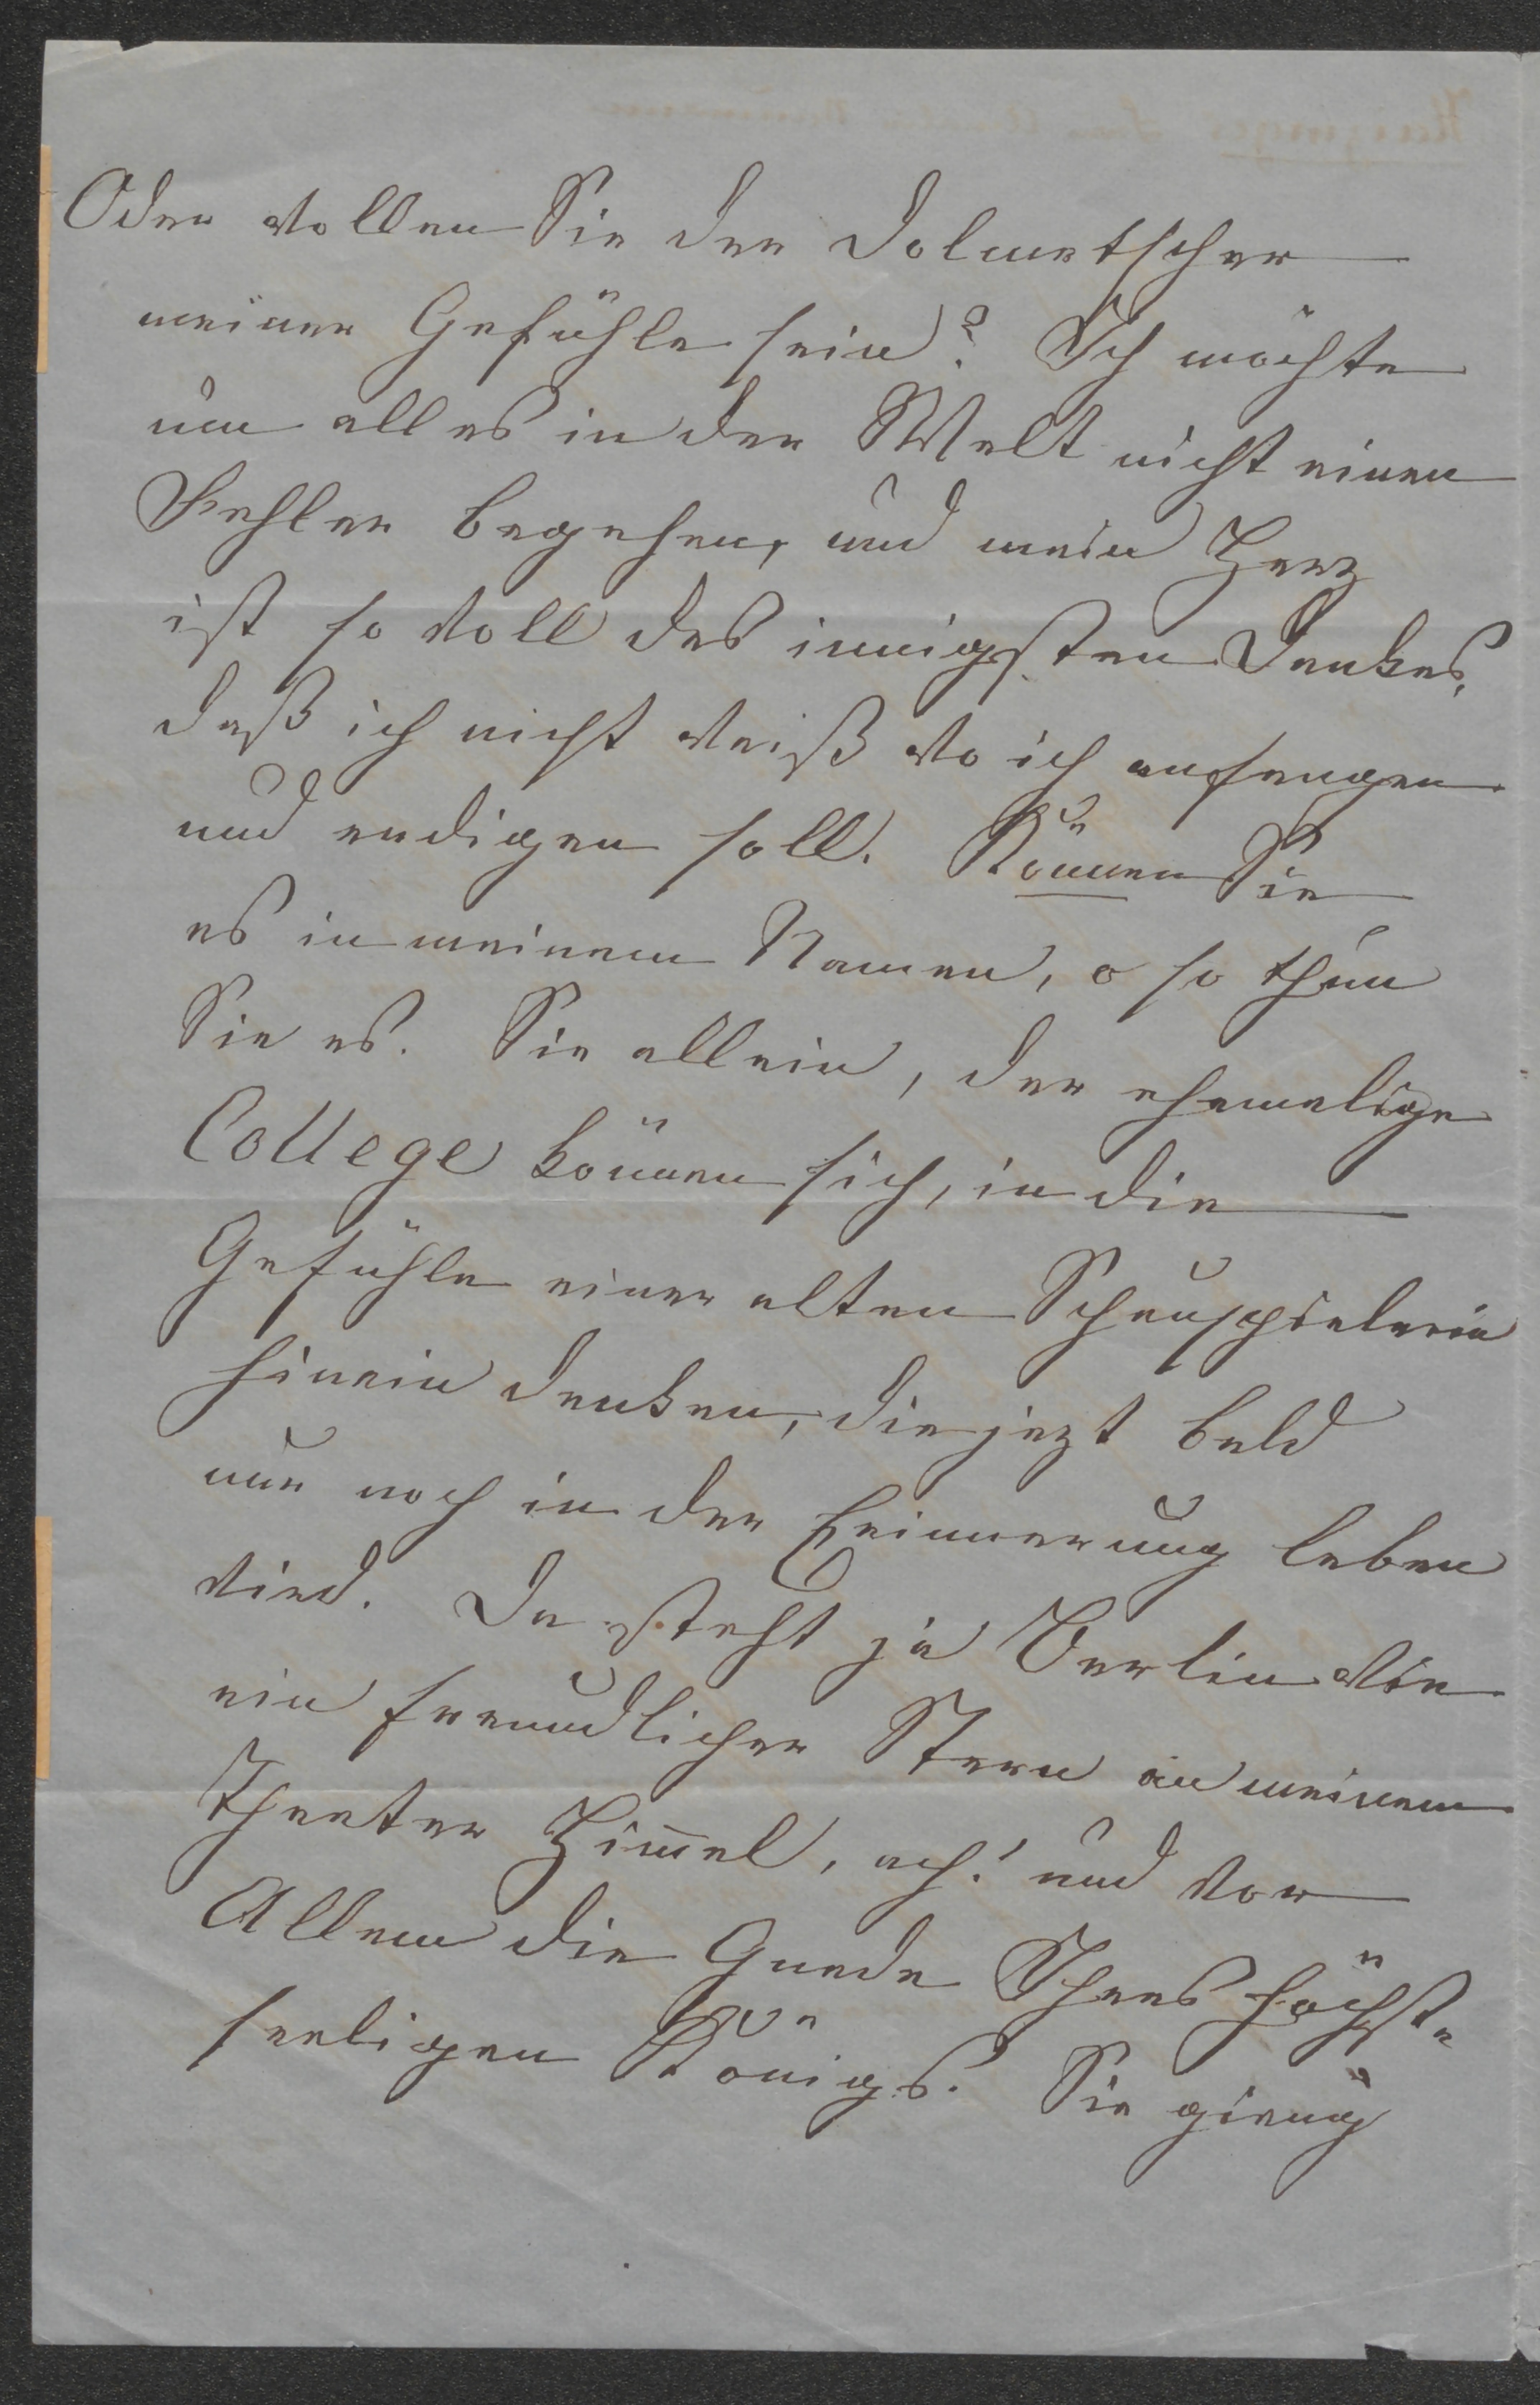 Oder wollen Sie der Dolmetscher
meiner Gefühle sein? Ich möchte
um alles in der Welt nicht einen
Fehler begehen, und mein Herz
ist so voll des innigsten Dankes,
daß ich nicht weiß wo ich anfangen
und endigen soll. Können Sie
es in meinem Namen, o so thun
Sie es. Sie allein, der ehemalige
College können sich, in die
Gefühle einer alten Schauspielerin
hinein denken, die jezt bald
nur noch in der Erinnerung leben
wird. Da steht ja Berlin wie
ein freundlicher Stern an meinem
Theater Himmel, ach! und vor
Allem die Gnade Ihres höchst-
seeligen Königs. Sie gieng